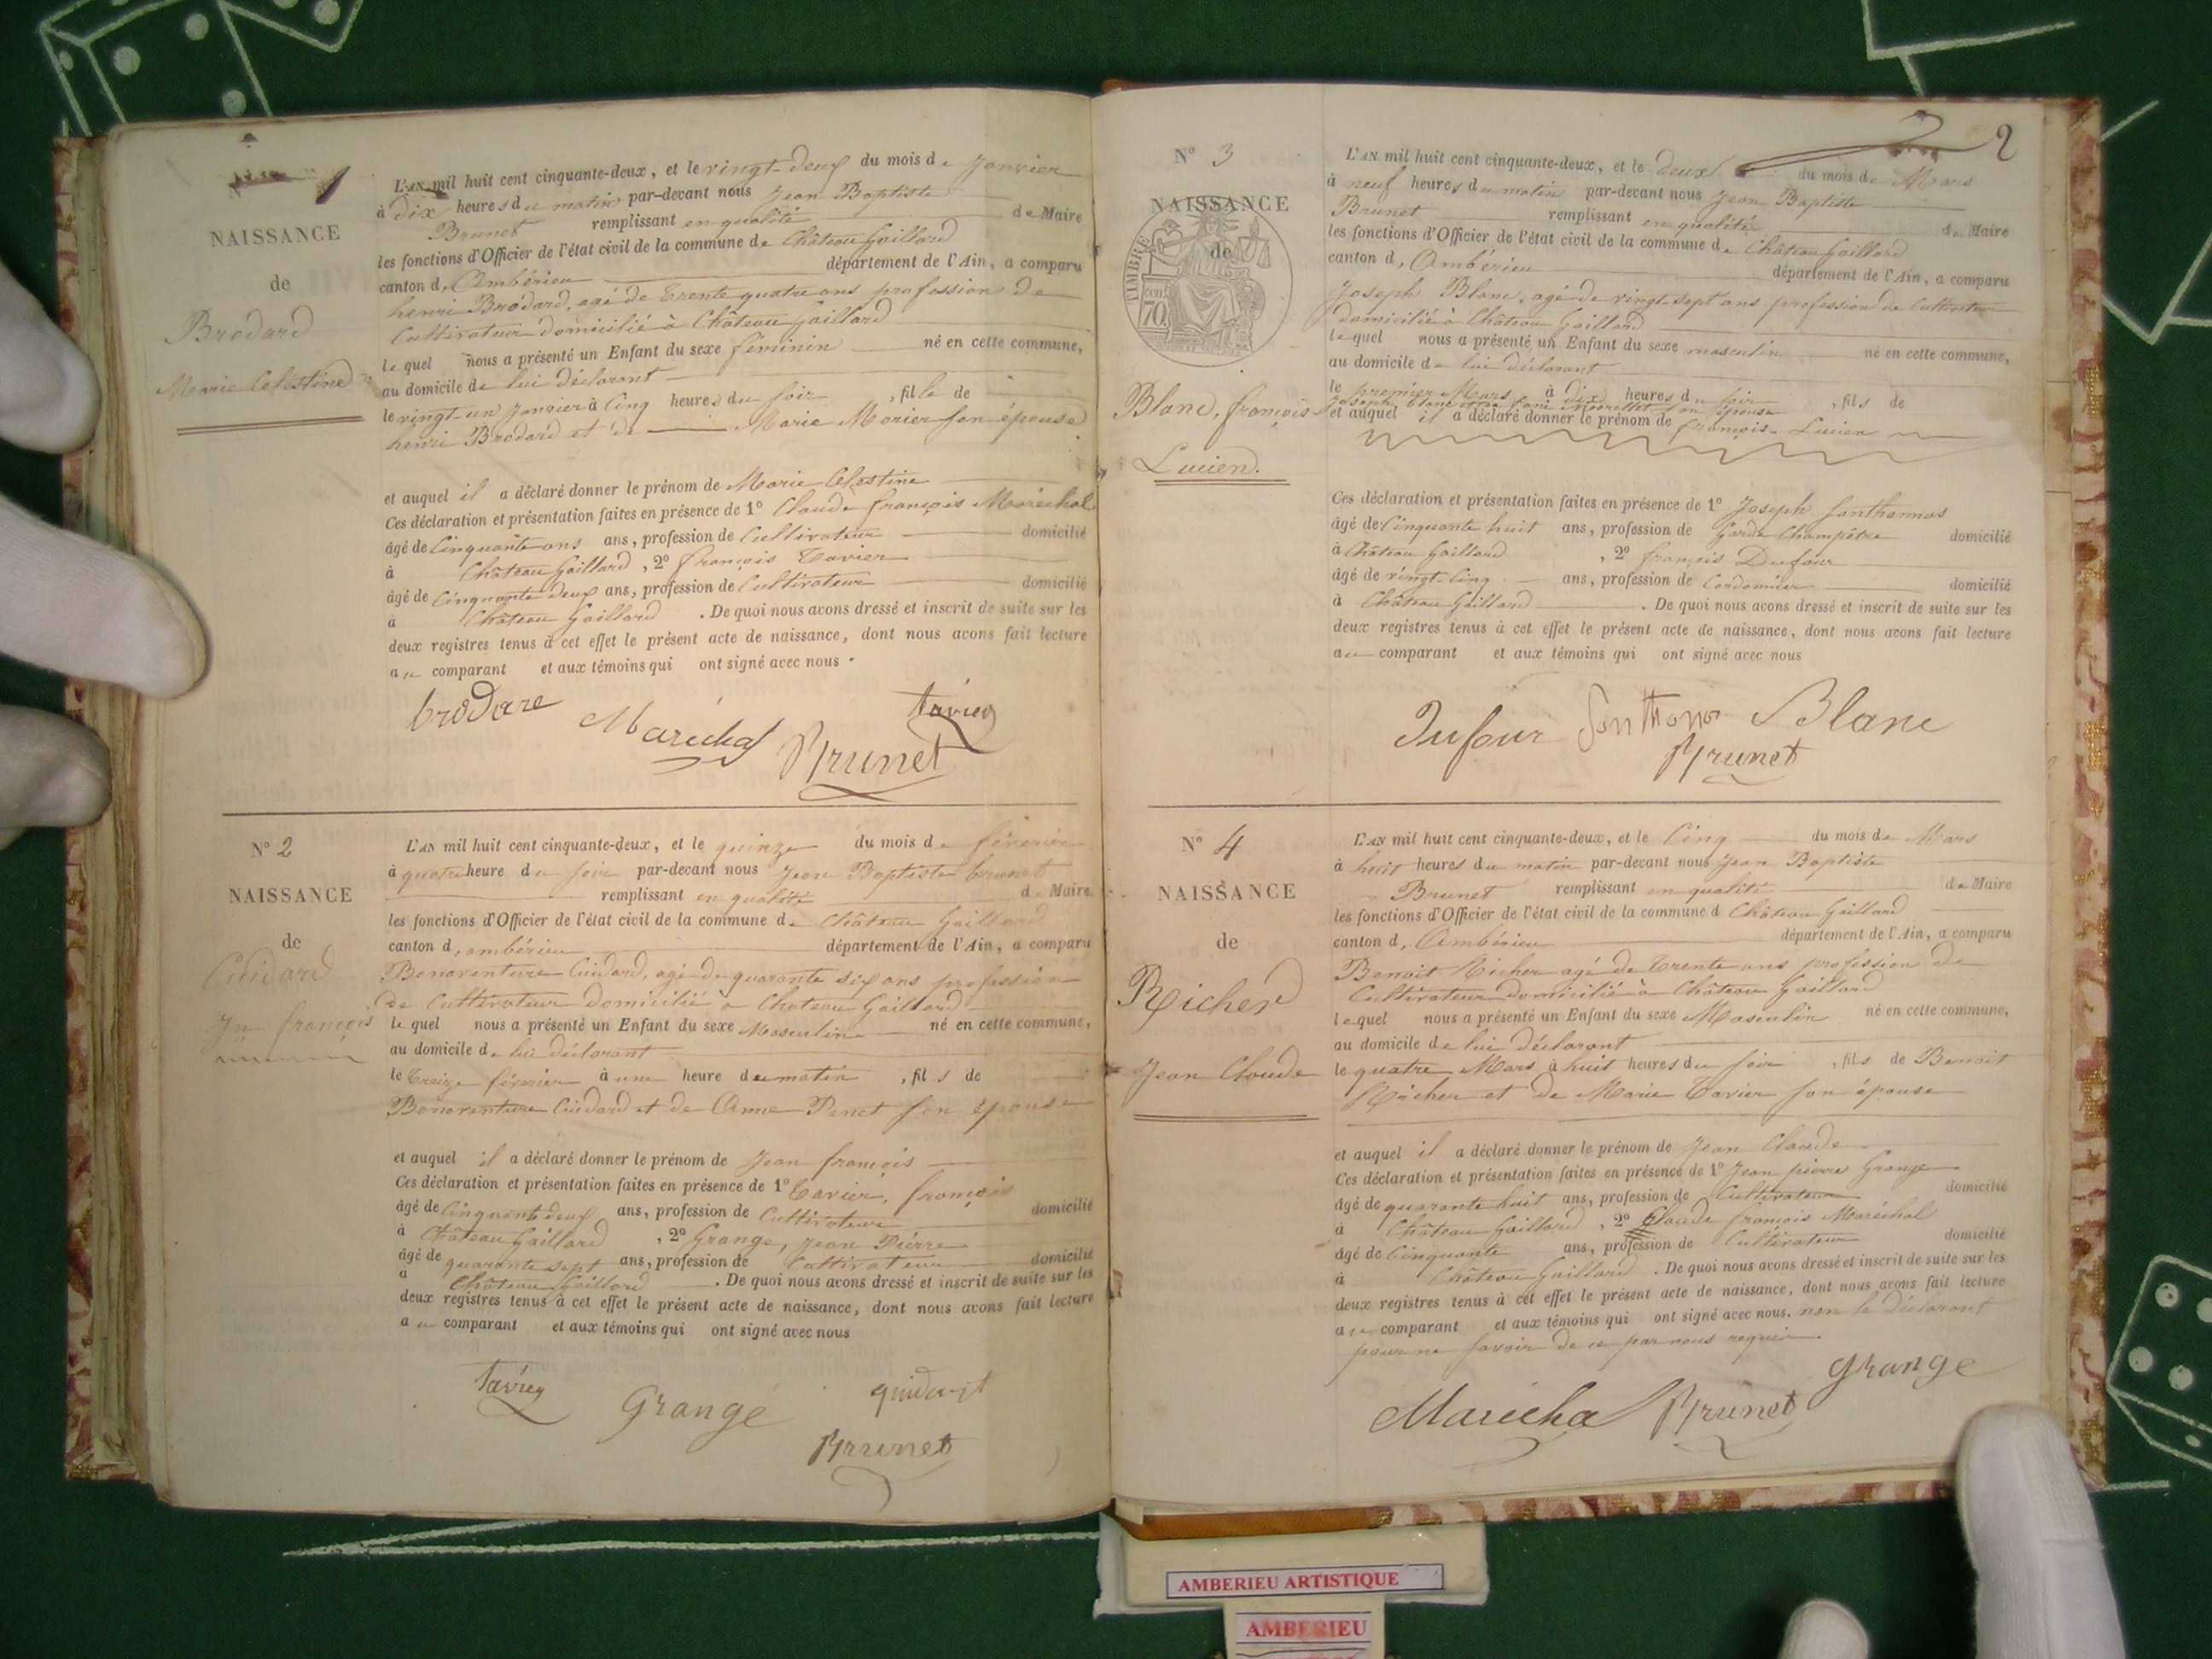 N° 1
NAISSANCE
de
Brodard
Marie Celestine
L'AN mil huit cent cinquante-deux, et le vingt-deux du mois de Janvier
à dix heures du matin par-devant nous Jean Baptiste
Brunet remplissant en qualité de Maire
les fonctions d'Officier de l'état civil de la commune de Château Gaillard
canton d, Ambérieu département de l'Ain, a comparu
henri Brodard, agé de trente quatre ans profession de
Cultivateur domicilié à Château Gaillard
le quel nous a présenté un Enfant du sexe féminin né en cette commune,
au domicile de lui déclarant
le vingt-un Janvier à Cinq heures du soir , fille de
henri Brodard et de Marie Monier son épouse
et auquel il a déclaré donner le prénom de Marie Celestine
Ces déclaration et présentation faites en présence de 1° Claude françois Maréchal
âgé de Cinquante ans ans, profession de Cultivateur domicilié
à Château Gaillard , 2° françois Tavier
âgé de Cinquante deux ans, profession de Cultivateur domicilié
à Château Gaillard . De quoi nous avons dressé et inscrit de suite sur les
deux registres tenus à cet effet le présent acte de naissance, dont nous avons fait lecture
au comparant et aux témoins qui ont signé avec nous .
brodare Maréchal tavier
Brunet
N° 2
NAISSANCE
de
Cuidard
Jn françois
L'AN mil huit cent cinquante-deux, et le quinze du mois de février
à quatre heure du soir par-devant nous Jean Baptiste brunet
remplissant en qualité de Maire
les fonctions d'Officier de l'état civil de la commune de Château Gaillard
canton d, ambérieu département de l'Ain, a comparu
Bonaventure Cuidard, agé de quarante six ans profession
de Cultivateur domicilié a Chateau Gaillard
le quel nous a présenté un Enfant du sexe Masculin né en cette commune,
au domicile de lui déclarant
le treize février à une heure du matin , fils de
Bonaventure Cuidard et de Anne Penet son épouse
et auquel il a déclaré donner le prénom de Jean françois
Ces déclaration et présentation faites en présence de 1° Tavier, françois
âgé de Cinquante deux ans, profession de Cultivateur domicilié
à Château Gaillard , 2° Grange, Jean Pierre
âgé de quarante sept ans, profession de Cultivateur domicilié
a Château Gaillard . De quoi nous avons dressé et inscrit de suite sur les
deux registres tenus à cet effet le présent acte de naissance, dont nous avons fait lecture
au comparant et aux témoins qui ont signé avec nous
tavier Grange
Brunet
2
N° 3
NAISSANCE
de
TIMBRE
70
Blanc, françois
Lucien.
L'AN mil huit cent cinquante-deux, et le deux du mois de Mars
à neuf heures du matin par-devant nous Jean Baptiste
Brunet remplissant en qualité de Maire
les fonctions d'Officier de l'état civil de la commune de Château Gaillard
canton d, Ambérieu département de l'Ain, a comparu
Joseph Blanc, agé de vingt-sept ans profession de Cultivateur
domicilié à Château Gaillard
le quel nous a présenté un Enfant du sexe masculin né en cette commune,
au domicile de lui déclarant
le premier Mars à dix heures du soir , fils de
Joseph blanc et de son épouse
et auquel il a déclaré donner le prénom de françois-Lucien
Ces déclaration et présentation faites en présence de 1° Joseph Santhonnas
âgé de Cinquante huit ans, profession de Garde Champêtre domicilié
à Château Gaillard , 2° françois Dufour
âgé de vingt-Cinq ans, profession de Cordonnier domicilié
à Château Gaillard . De quoi nous avons dressé et inscrit de suite sur les
deux registres tenus à cet effet le présent acte de naissance, dont nous avons fait lecture
au comparant et aux témoins qui ont signé avec nous
Dufour Blanc
Brunet
N° 4
NAISSANCE
de
Richer
Jean Claude
L'AN mil huit cent cinquante-deux, et le Cinq du mois de Mars
à huit heures du matin par-devant nous Jean Baptiste
Brunet remplissant en qualité de Maire
les fonctions d'Officier de l'état civil de la commune d Château Gaillard
canton d, Ambérieu département de l'Ain, a comparu
Benoit Richer agé de trente ans profession de
Cultivateur domicilié à Château Gaillard
lequel nous a présenté un Enfant du sexe Masculin né en cette commune,
au domicile de lui déclarant
le quatre Mars à huit heures du soir , fils de Benoit
Richer et de Marie Tavier son épouse
et auquel il a déclaré donner le prénom de Jean Claude
Ces déclaration et présentation faites en présence de 1° Jean pierre Grange
âgé de quarante huit ans, profession de Cultivateur domicilié
à Château Gaillard , 2° Claude françois Maréchal
âgé de Cinquante ans, profession de Cultivateur domicilié
à Château Gaillard . De quoi nous avons dressé et inscrit de suite sur les
deux registres tenus à cet effet le présent acte de naissance, dont nous avons fait lecture
au comparant et aux témoins qui ont signé avec nous. non le déclarant
pour ne savoir de ce par nous requis.
Grange
Maréchal Brunet
AMBERIEU ARTISTIQUE
AMBERIEU